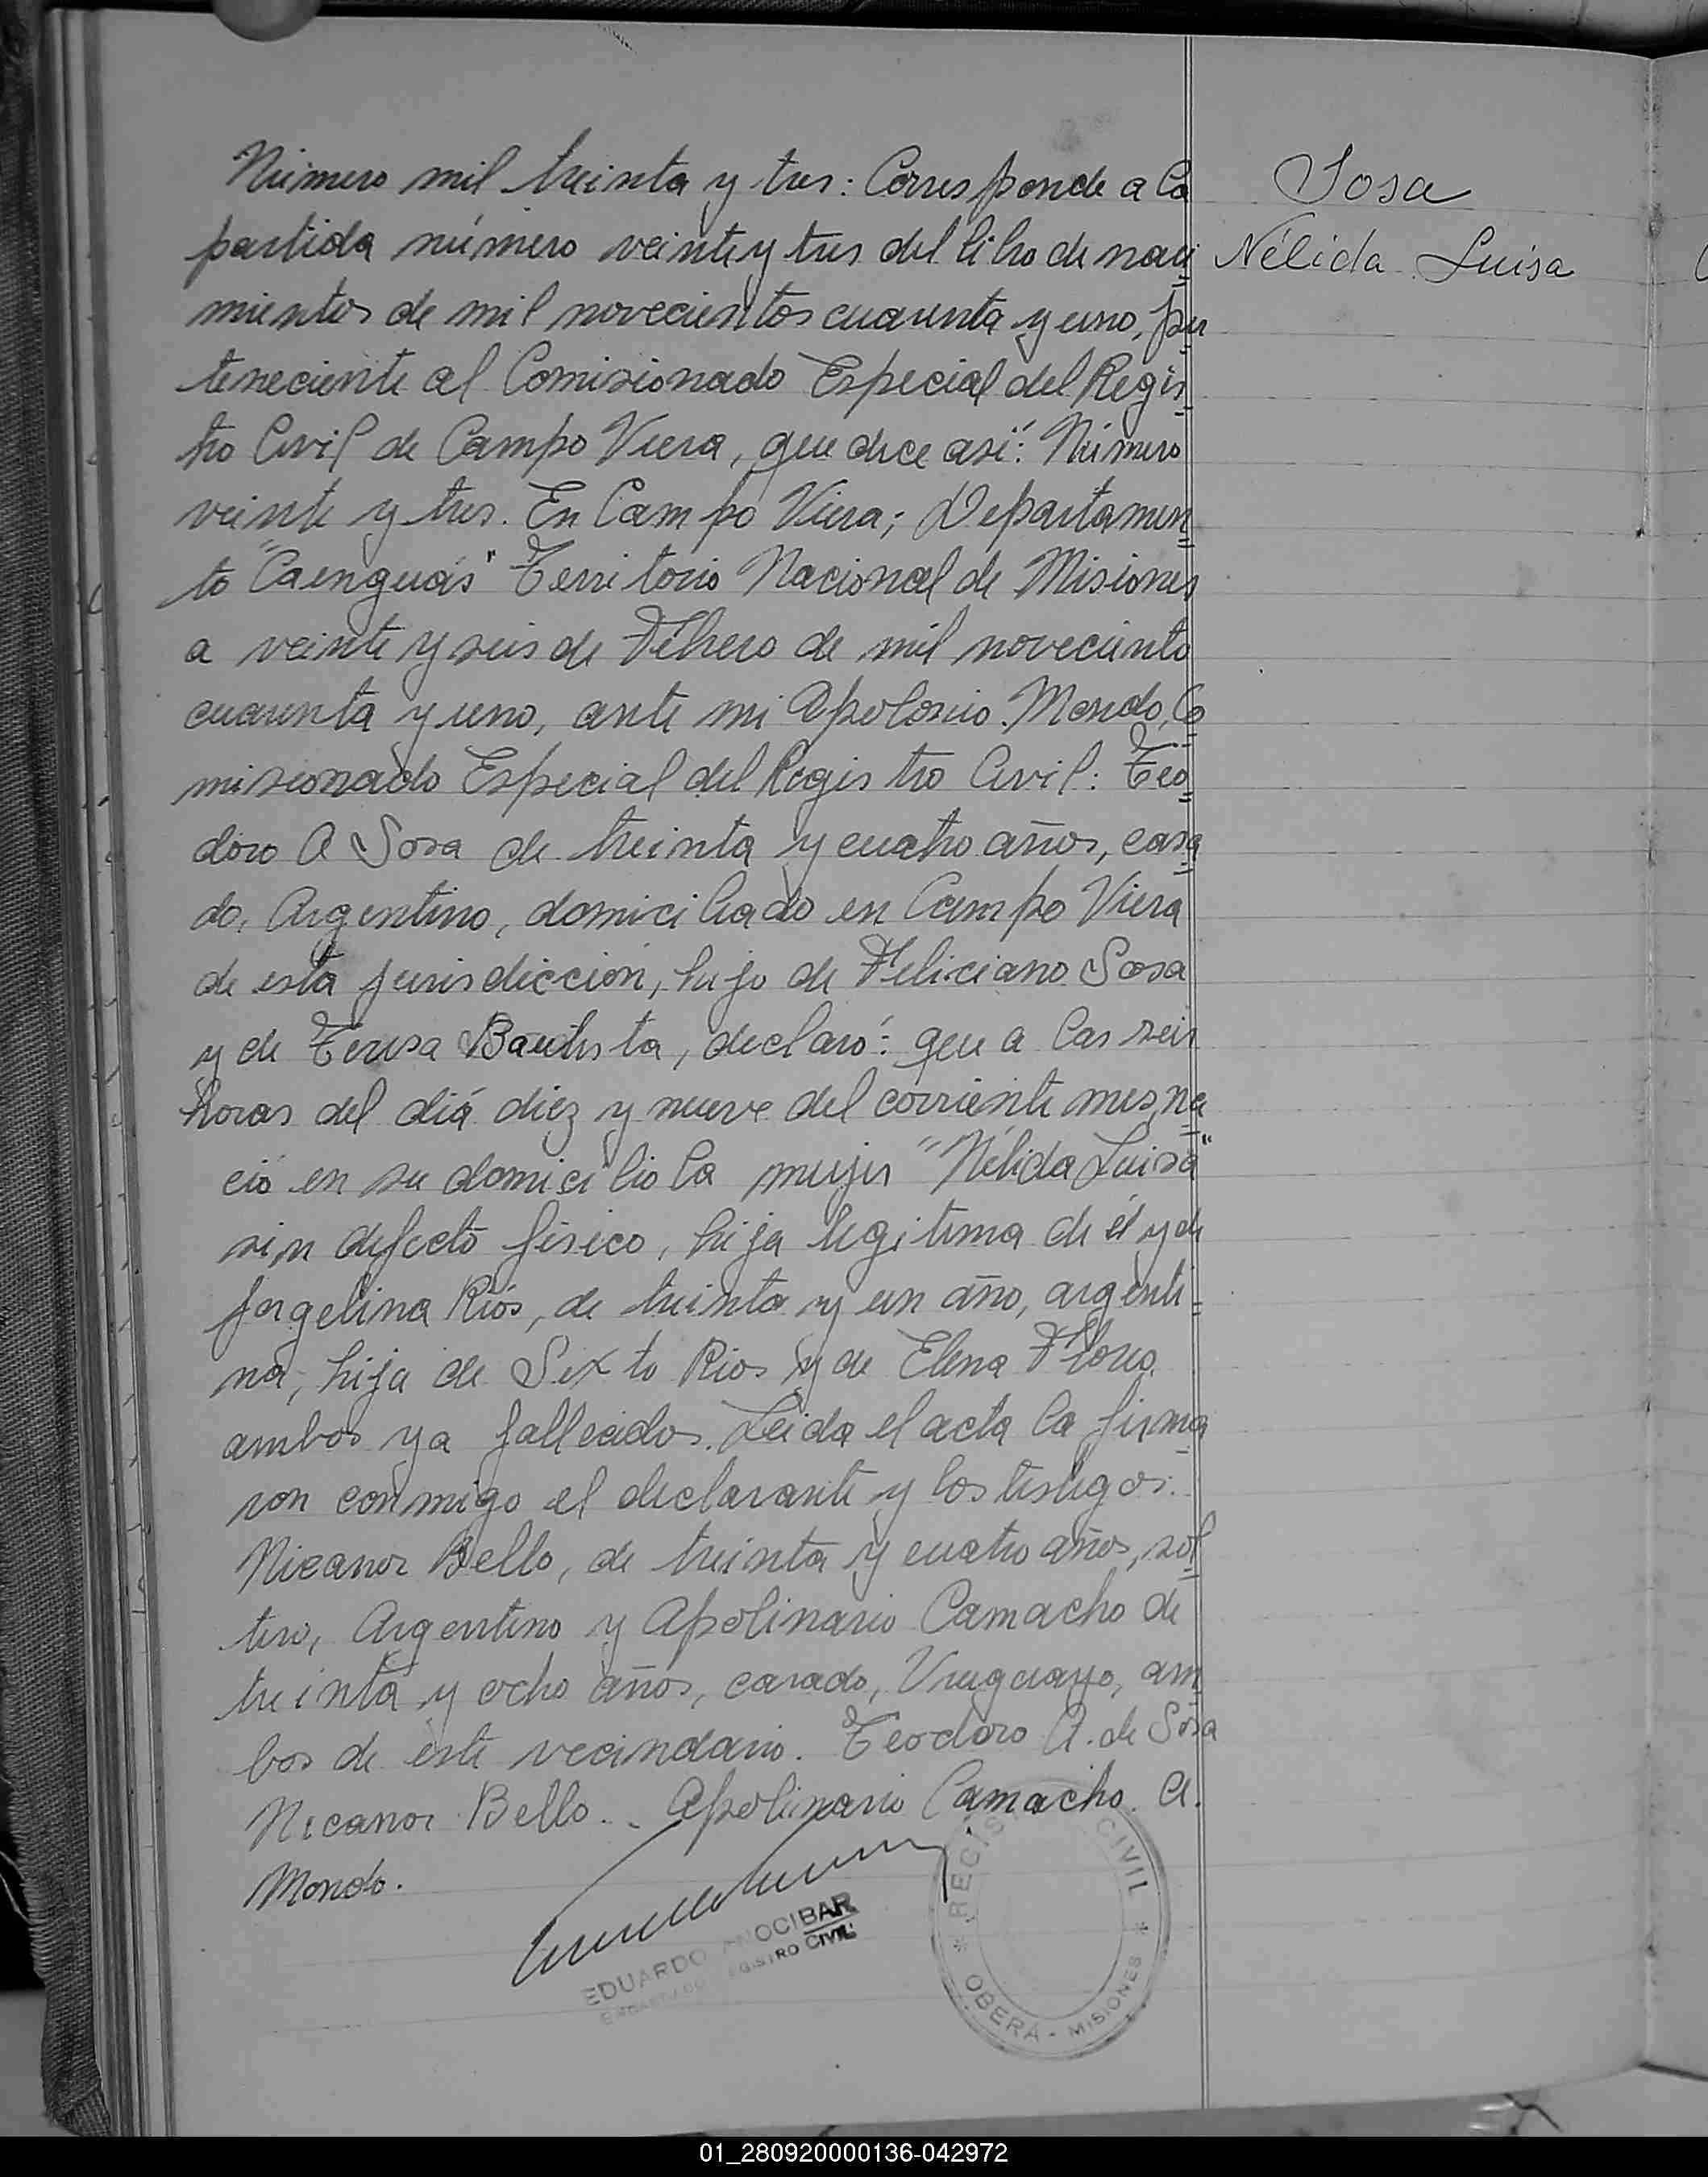 Número mil treinta y tres: Corresponde a la
partida número veinte y tres del libro de naci
mientos de mil novecientos cuarenta y uno, per
teneciente al Comisionado Especial del Regis
tro Civil de Campo Viera, que dice así: Número
veinte y tres. En Campo Viera; Departamen
to "Caenguás" Territorio Nacional de Misiones
a veinte y seis de Febrero de mil novecientos
cuarenta y uno, ante mi Apolonio Mondo, Co
misionado Especial del Registro Civil: Teo
doro A Sosa de treinta y cuatro años, casa
do, Argentino, domiciliado en Campo Viera
de esta jurisdicción, hijo de Feliciano Sosa
y de Teresa Bautista, declaró: que a las seis
horas del diá diez y nueve del corriente mes, na
ció en su domicilio la mujer "Nélida Luisa"
sin defecto físico, hija legitima de él y de
Jorgelina Ríos, de treinta y un año, argenti
na, hija de Sixto Rios y de Elena Flores.
ambos ya fallecidos. Leida el acta la firma
ron conmigo el declarante y los testigos:
Nicanor Bello, de treinta y cuatro años, sol
tero, Argentino y Apolinario Camacho de
treinta y ocho años, casado, Uruguayo, am
bos de este vecindario. Teodoro A. de Sosa
Nicanor Bello.. Apolinario Camacho. A.
Mondo.
Sosa
Nélida Luisa
EDUARDO ANOCIBAR
REGISTRO CIVIL
REGISTRO CIVIL
* OBERÁ - MISIONES *
01_280920000136-042972